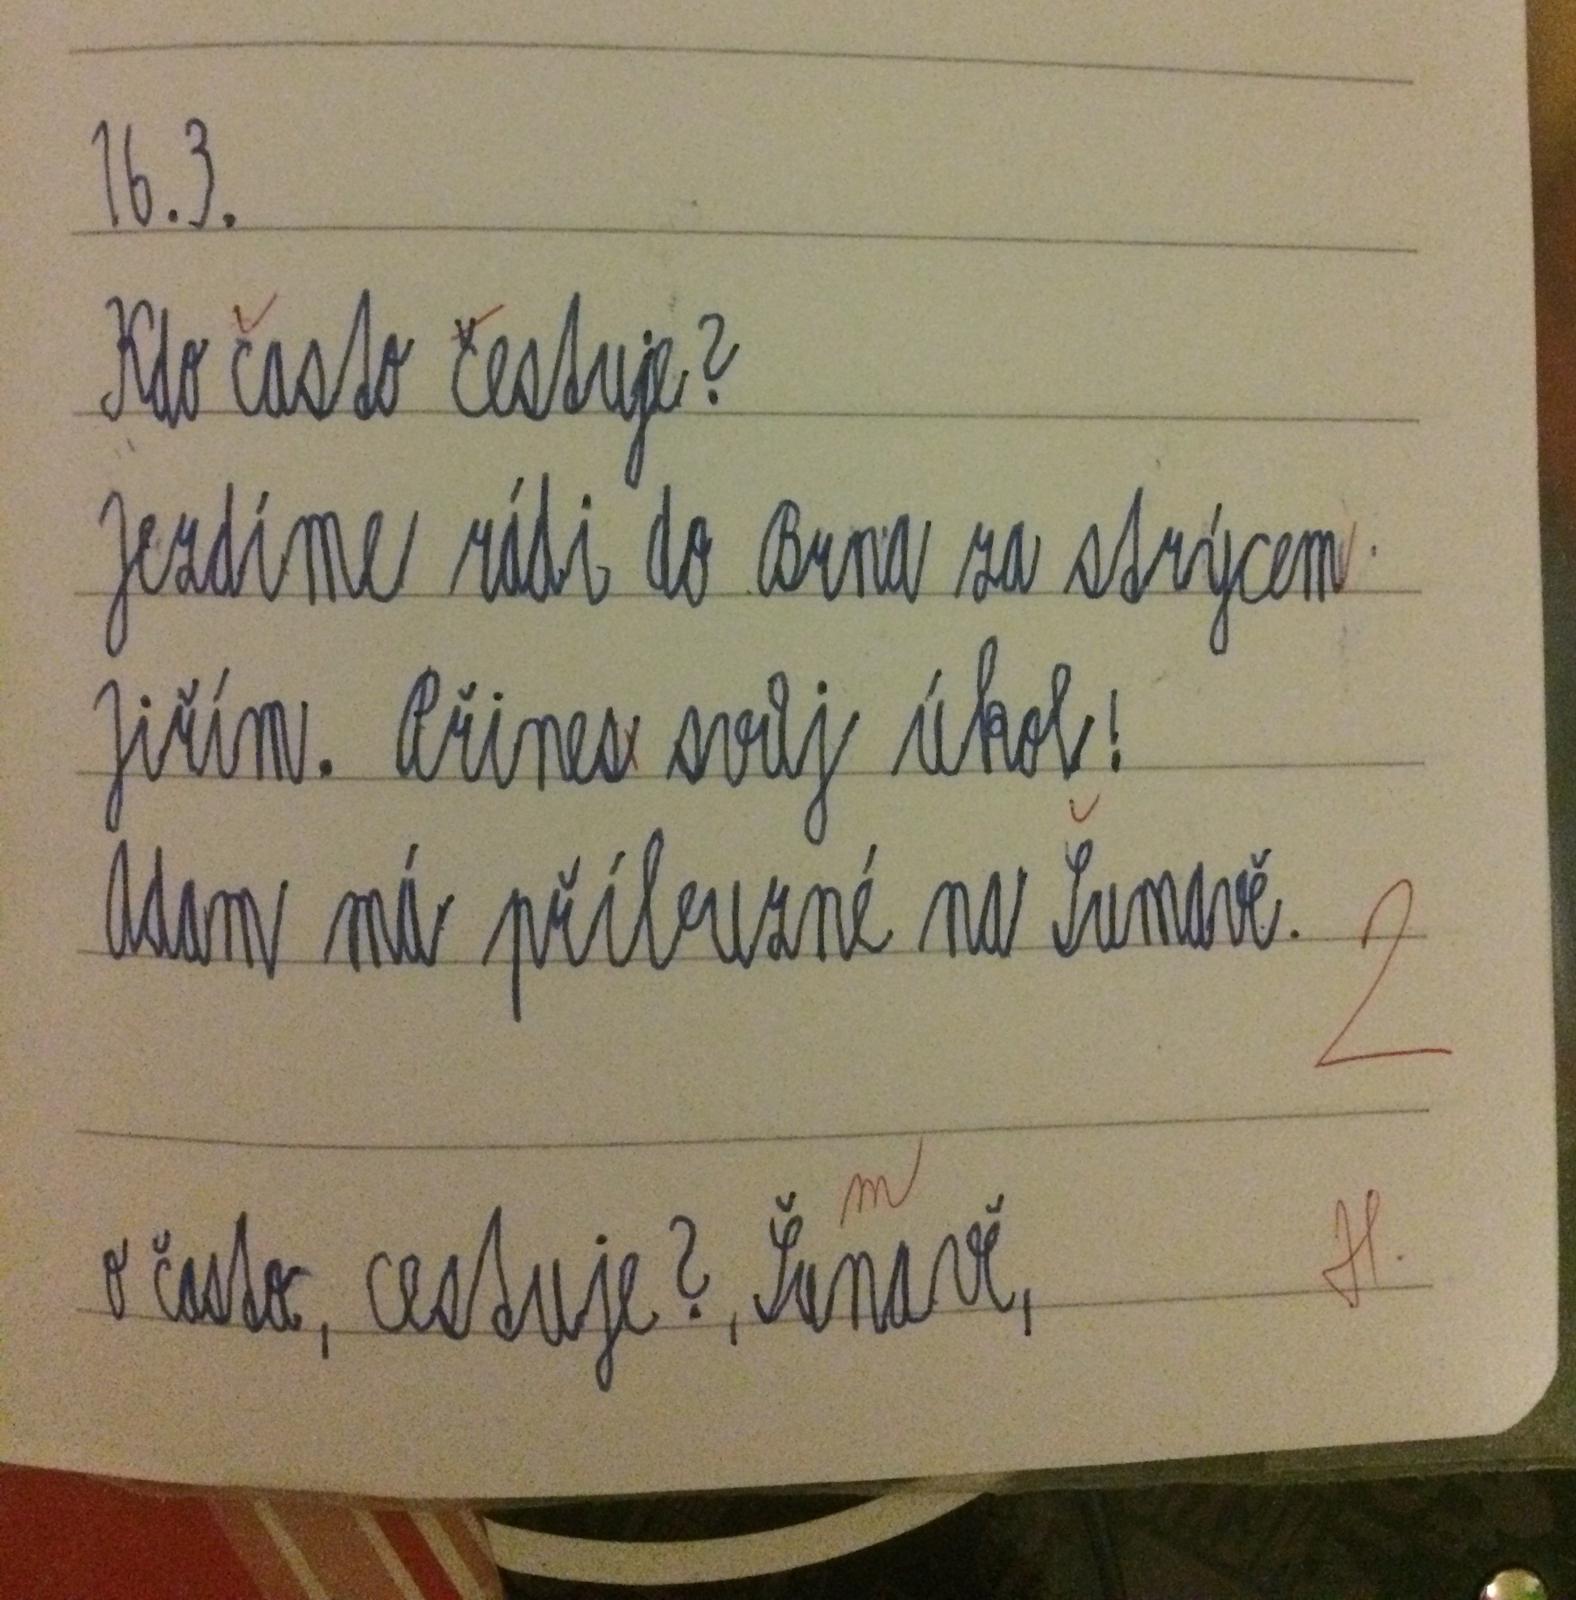 16.3.
Kdo často čestuje?
Jezdíme rádi do Brna za strýcem.
Jiřím. Přines svůj úkol!
Adam má příbuzné na Šumavě.
2
m
o často, cestuje?, Šunavě,
H.